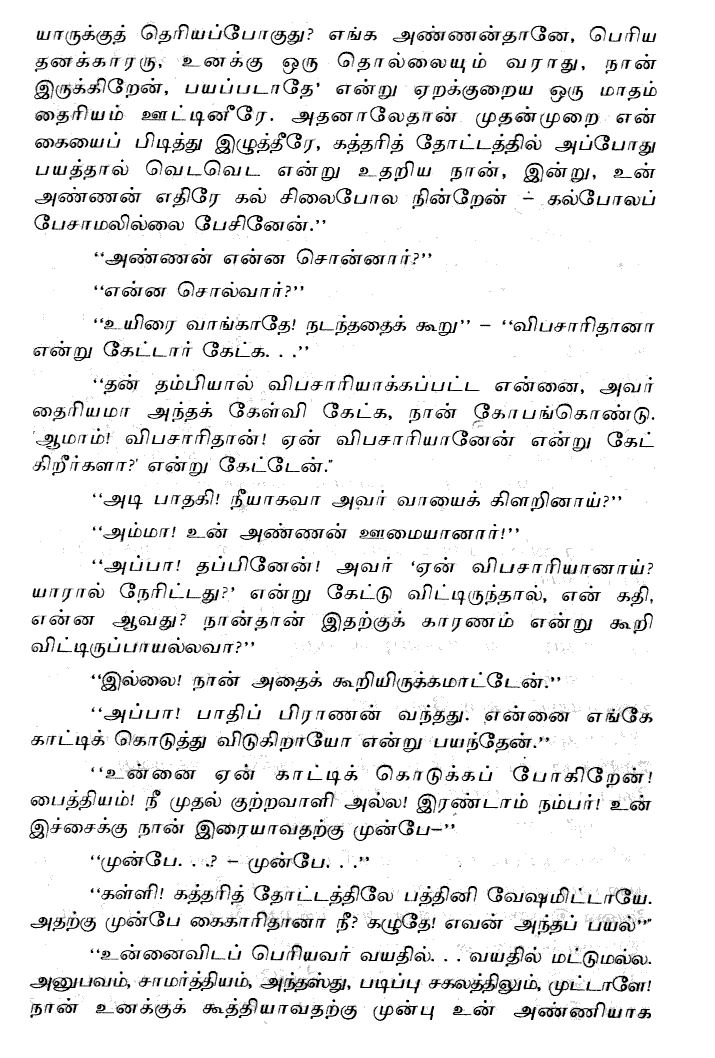 யாருக்குத் தெரியப்போகுது? எங்க அண்ணன்தானே, பெரிய
தனக்காரரு, உனக்கு ஒரு தொல்லையும் வராது, நான்
இருக்கிறேன், பயப்படாதே' என்று ஏறக்குறைய ஒரு மாதம்
தைரியம் ஊட்டினீரே. அதனாலேதான் முதன்முறை என்
கையைப் பிடித்து இழுத்தீரே, கத்தரித் தோட்டத்தில் அப்போது
பயத்தால் வெடவெட என்று உதறிய நான், இன்று, உன்
அண்ணன் எதிரே கல் சிலைபோல நின்றேன் – கல்போலப்
பேசாமலில்லை பேசினேன்.”
“அண்ணன் என்ன சொன்னார்?”
“என்ன சொல்வார்?”
“உயிரை வாங்காதே! நடந்ததைக் கூறு” – “விபசாரிதானா
என்று கேட்டார் கேட்க. . .”
“தன் தம்பியால் விபசாரியாக்கப்பட்ட என்னை, அவர்
தைரியமா அந்தக் கேள்வி கேட்க, நான் கோபங்கொண்டு.
'ஆமாம்! விபசாரிதான்! ஏன் விபசாரியானேன் என்று கேட்
கிறீர்களா?' என்று கேட்டேன்."
“அடி பாதகி! நீயாகவா அவர் வாயைக் கிளறினாய்?”
“அம்மா! உன் அண்ணன் ஊமையானார்!”
“அப்பா! தப்பினேன்! அவர் ‘ஏன் விபசாரியானாய்?
யாரால் நேரிட்டது?’ என்று கேட்டு விட்டிருந்தால், என் கதி,
என்ன ஆவது? நான்தான் இதற்குக் காரணம் என்று கூறி
விட்டிருப்பாயல்லவா?”
“இல்லை! நான் அதைக் கூறியிருக்கமாட்டேன்.”
“அப்பா! பாதிப் பிராணன் வந்தது. என்னை எங்கே
காட்டிக் கொடுத்து விடுகிறாயோ என்று பயந்தேன்.”
“உன்னை ஏன் காட்டிக் கொடுக்கப் போகிறேன்!
பைத்தியம்! நீ முதல் குற்றவாளி அல்ல! இரண்டாம் நம்பர்! உன்
இச்சைக்கு நான் இரையாவதற்கு முன்பே–”
“முன்பே. . .? – முன்பே. . .”
“கள்ளி! கத்தரித் தோட்டத்திலே பத்தினி வேஷமிட்டாயே.
அதற்கு முன்பே கைகாரிதானா நீ? கழுதே! எவன் அந்தப் பயல்”"
“உன்னைவிடப் பெரியவர் வயதில். . . வயதில் மட்டுமல்ல.
அனுபவம், சாமர்த்தியம், அந்தஸ்து, படிப்பு சகலத்திலும், முட்டாளே!
நான் உனக்குக் கூத்தியாவதற்கு முன்பு உன் அண்ணியாக